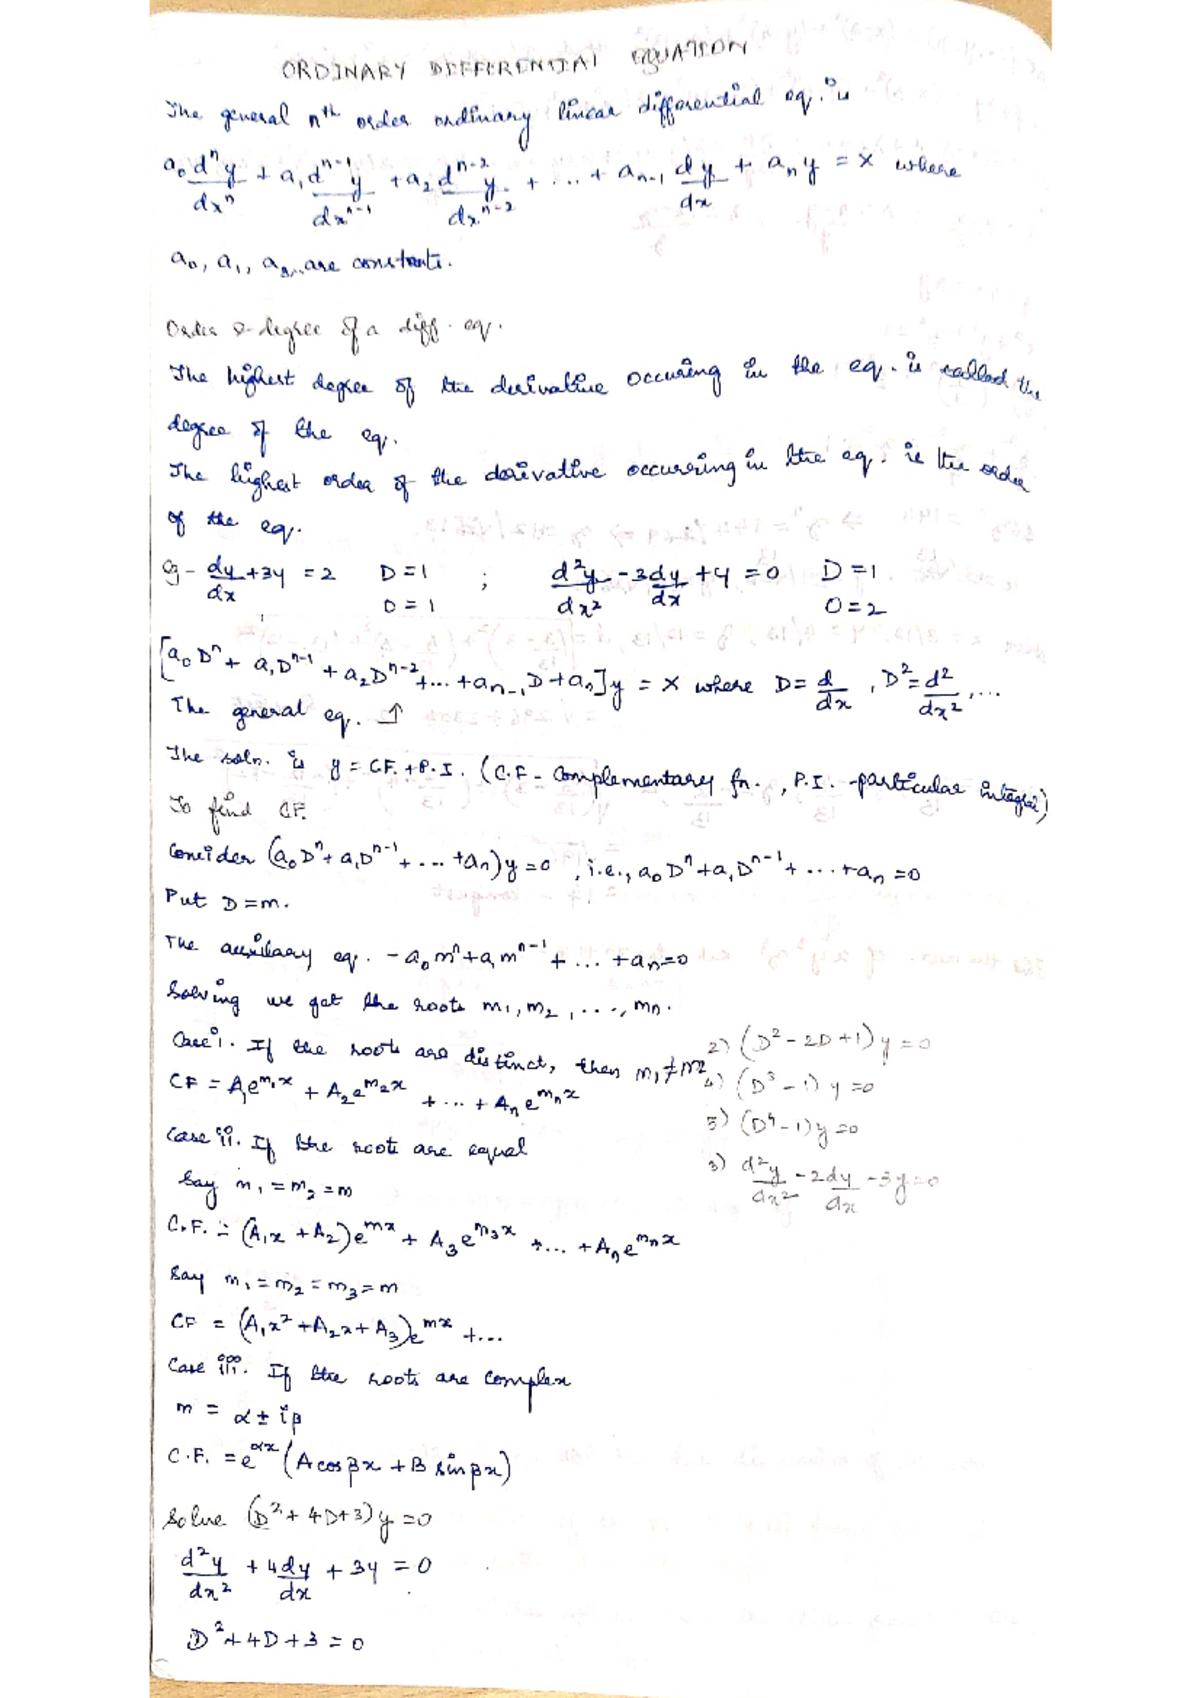 ORDINARY DIFFERENTIAL EQUATION
The general nth order ordinary linear differential eq. is
a₀ dⁿy/dxⁿ + a₁ dⁿ⁻¹y/dxⁿ⁻¹ + a₂ dⁿ⁻²y/dxⁿ⁻² + ... + aₙ₋₁ dy/dx + aₙy = X where
a₀, a₁, a₂... are constants.
Order & degree of a diff. eq.
The highest degree of the derivative occuring in the eq. is called the
degree of the eq.
The highest order of the derivative occurring in the eq. is the order
of the eq.
eg - dy/dx + 3y = 2 D = 1 ; d²y/dx² - 3dy/dx + 4 = 0 D = 1
O = 1 O = 2
[a₀Dⁿ + a₁Dⁿ⁻¹ + a₂Dⁿ⁻² + ... + aₙ₋₁D + aₙ]y = X where D = d/dx, D² = d²/dx², ...
The general eq. ↑
The soln. is y = CF. + P.I. (C.F - Complementary fn., P.I. - particular integral)
To find CF.
Consider (a₀Dⁿ + a₁Dⁿ⁻¹ + ... + aₙ)y = 0, i.e., a₀Dⁿ + a₁Dⁿ⁻¹ + ... + aₙ = 0
Put D = m.
The auxilaary eq. - a₀mⁿ + a₁mⁿ⁻¹ + ... + aₙ = 0
Solving we get the roots m₁, m₂, ..., mₙ.
Case i. If the roots are distinct, then m₁ ≠ m₂
CF = A₁e^m₁x + A₂e^m₂x + ... + Aₙe^mₙx
Case ii. If the roots are equal
Say m₁ = m₂ = m
C.F. = (A₁x + A₂)e^mx + A₃e^m₃x + ... + Aₙe^mₙx
Say m₁ = m₂ = m₃ = m
CF = (A₁x² + A₂x + A₃)e^mx + ...
Case iii. If the roots are complex
m = α ± iβ
C.F. = e^αx (A cos βx + B sin βx)
Solve (D² + 4D + 3)y = 0
d²y/dx² + 4dy/dx + 3y = 0
D² + 4D + 3 = 0
2) (D² - 2D + 1)y = 0
4) (D³ - 1)y = 0
5) (D⁴ - 1)y = 0
3) d²y/dx² - 2dy/dx - 3y = 0